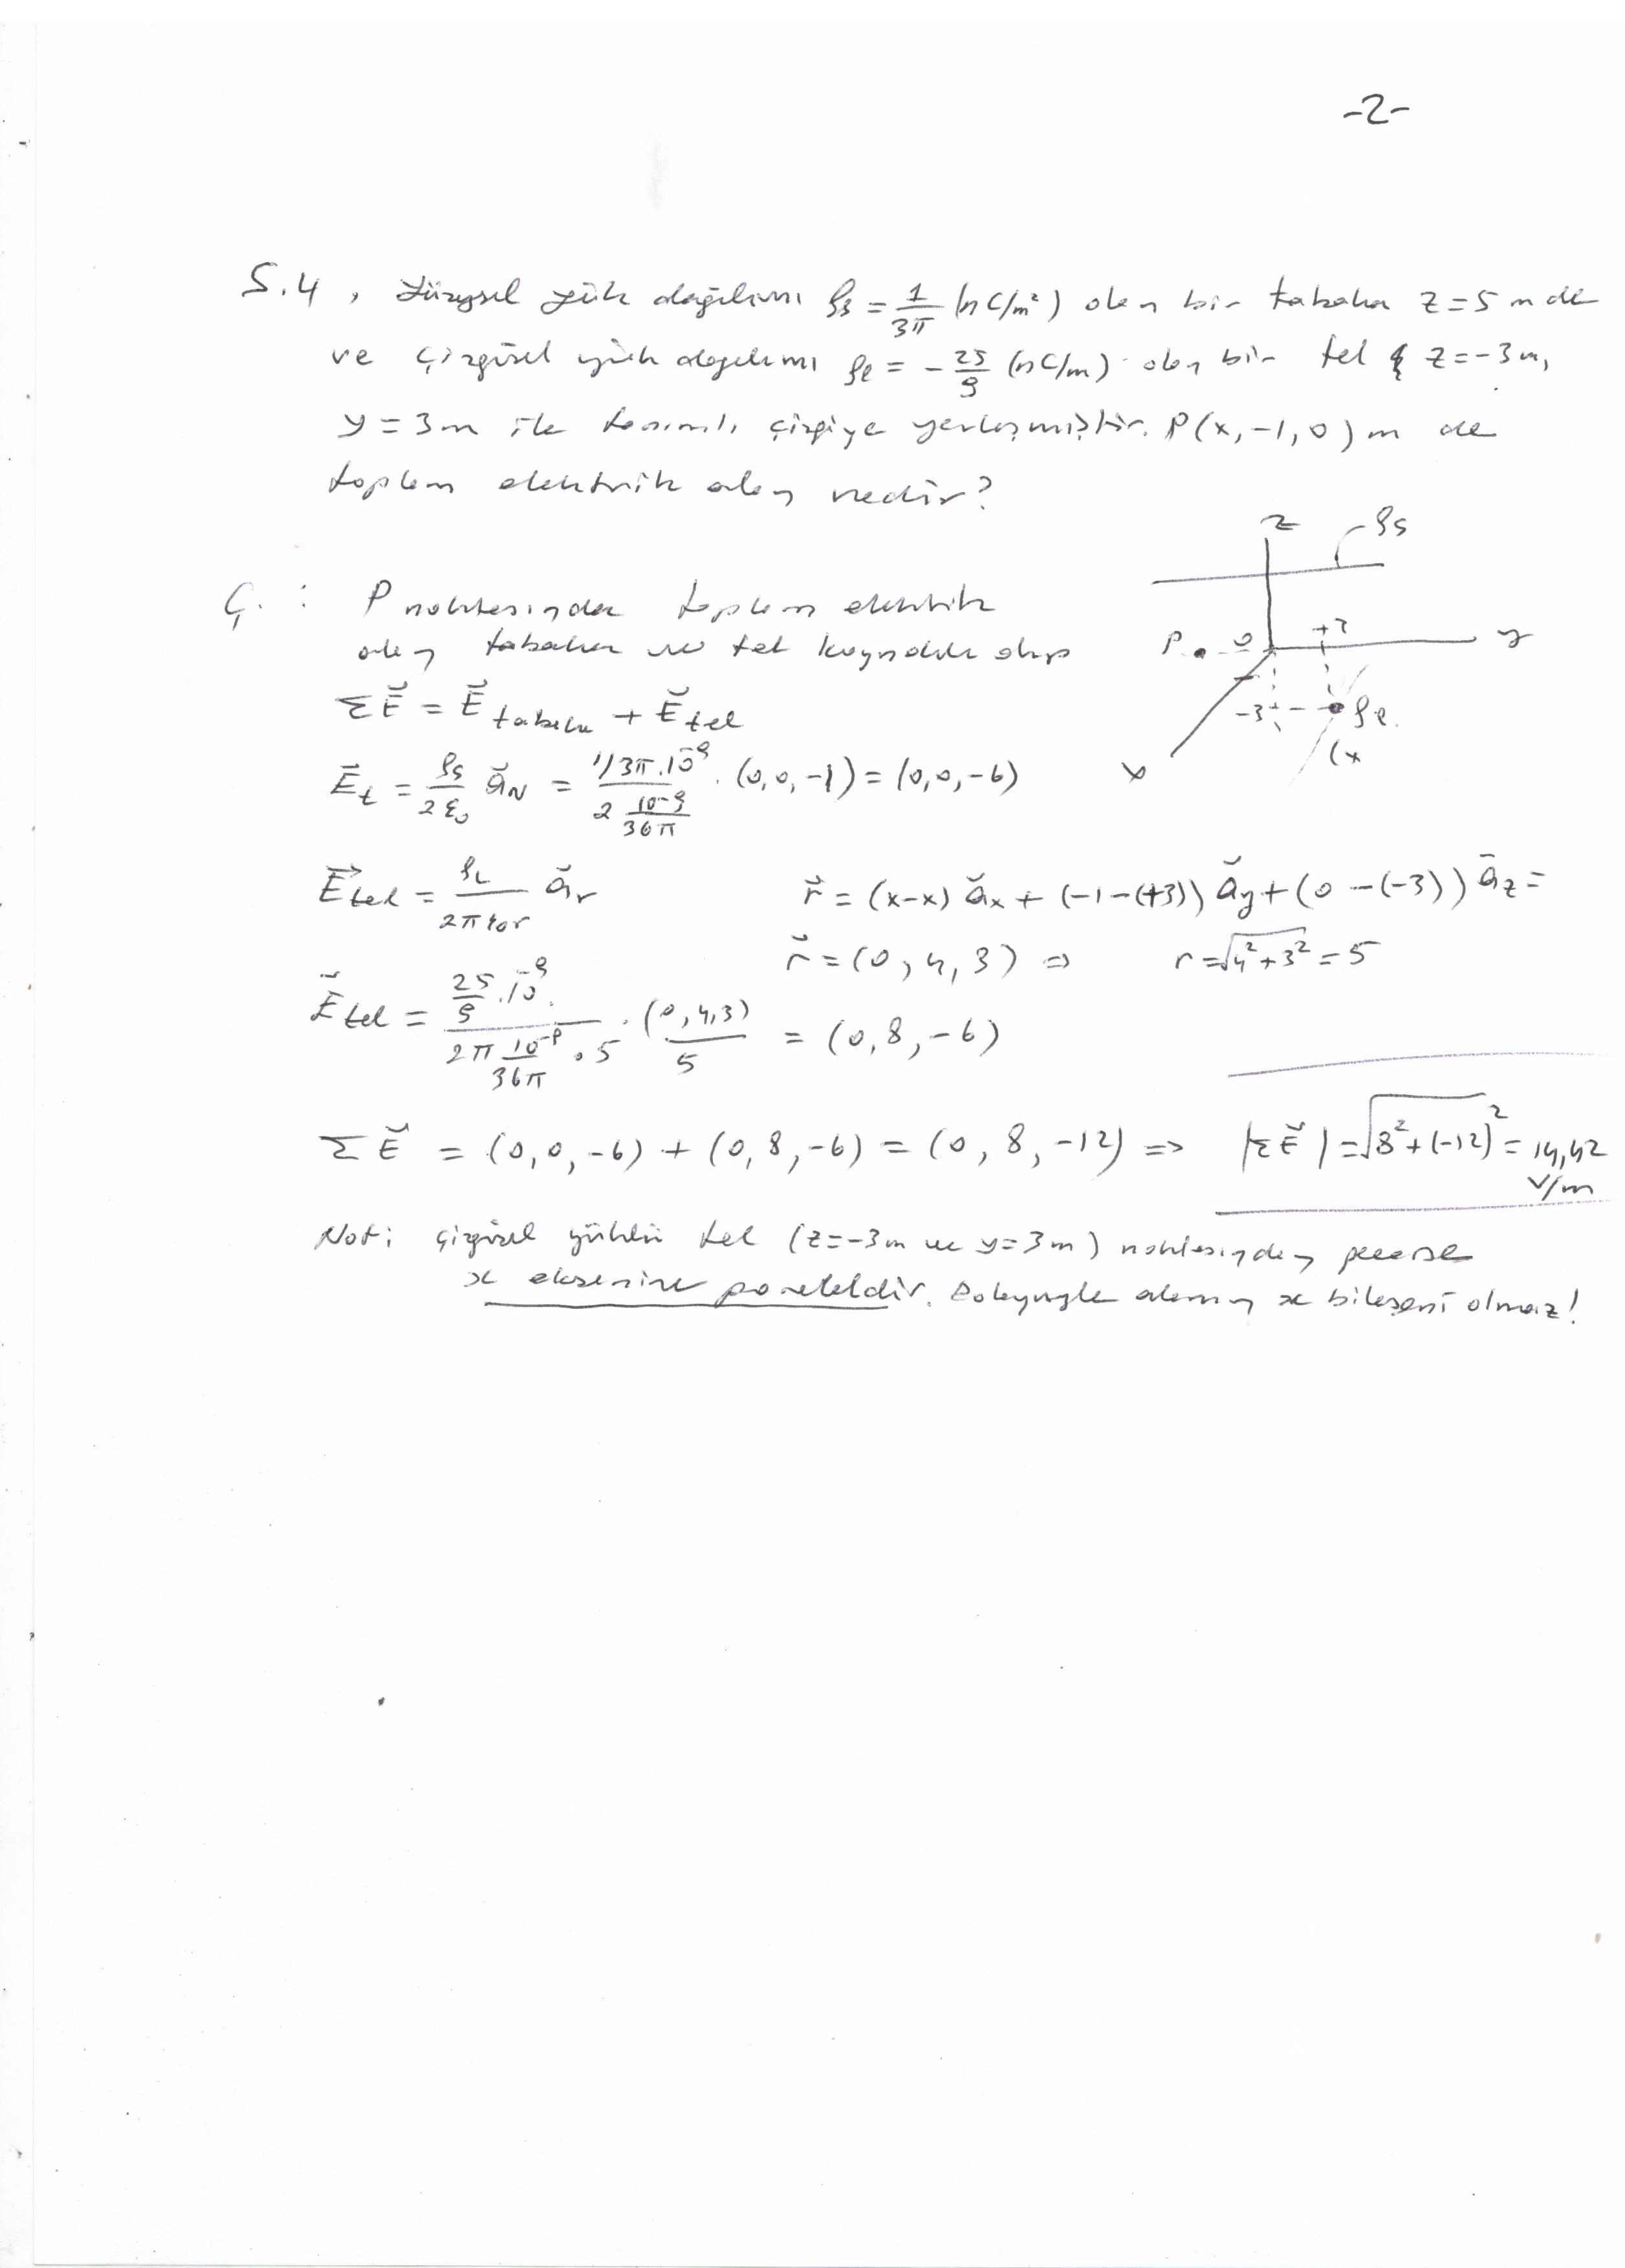 -2-
S.4, Yüzeysel yük dağılımı ρs = 1/3π (nC/m²) olan bir tabaka z=5 m de
ve çizgisel yük dağılımı ρℓ = -25/9 (nC/m) olan bir tel z=-3m,
y=3m ile tanımlı çizgiye yerleşmiştir. P(x,-1,0) m de
toplam elektrik alan nedir?
z
ρs
Ç. : P noktasında toplam elektrik
alan tabaka ve tel kaynaklı olup
P 0 +3 y
-3 ρℓ
x (x
ΣE⃗ = E⃗tabaka + E⃗tel
E⃗t = ρs/2ε₀ a⃗N = (1/3π.10⁻⁹)/(2 10⁻⁹/36π) . (0,0,-1) = (0,0,-6)
E⃗tel = ρL/2πε₀r a⃗r r⃗ = (x-x) a⃗x + (-1-(+3)) a⃗y + (0-(-3)) a⃗z =
r⃗ = (0,4,3) ⇒ r = √4²+3² = 5
E⃗tel = (25/9 .10⁻⁹.)/(2π 10⁻⁹/36π . 5) . (0,4,3)/5 = (0,8,-6)
ΣE⃗ = (0,0,-6) + (0,8,-6) = (0,8,-12) ⇒ |ΣE⃗| = √8²+(-12)² = 14,42
V/m
Not: çizgisel yüklü tel (z=-3m ve y=3m) noktasından geçerse
x eksenine paraleldir. Dolayısıyla alanın x bileşeni olmaz!